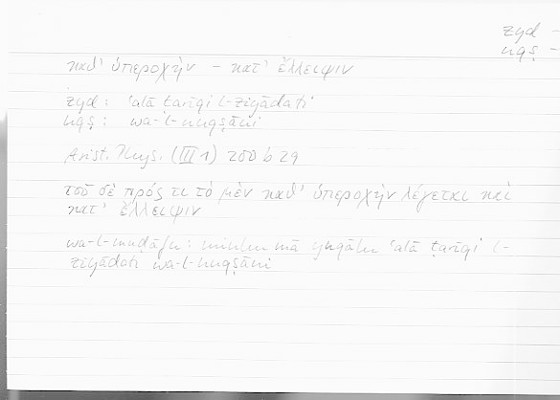 zyd -
nqṣ -
καθ' ὑπεροχὴν - κατ' ἔλλειψιν
zyd : ʿalā ṭarīqi l-ziyādati
nqṣ : wa-l-nuqṣāni
Arist. Phys. (III 1) 200 b 29
τοῦ δὲ πρός τι τὸ μὲν καθ' ὑπεροχὴν λέγεται καὶ
κατ' ἔλλειψιν
wa-l-muḍāfu : minhu mā yuqālu ʿalā ṭarīqi l-
ziyādati wa-l-nuqṣāni